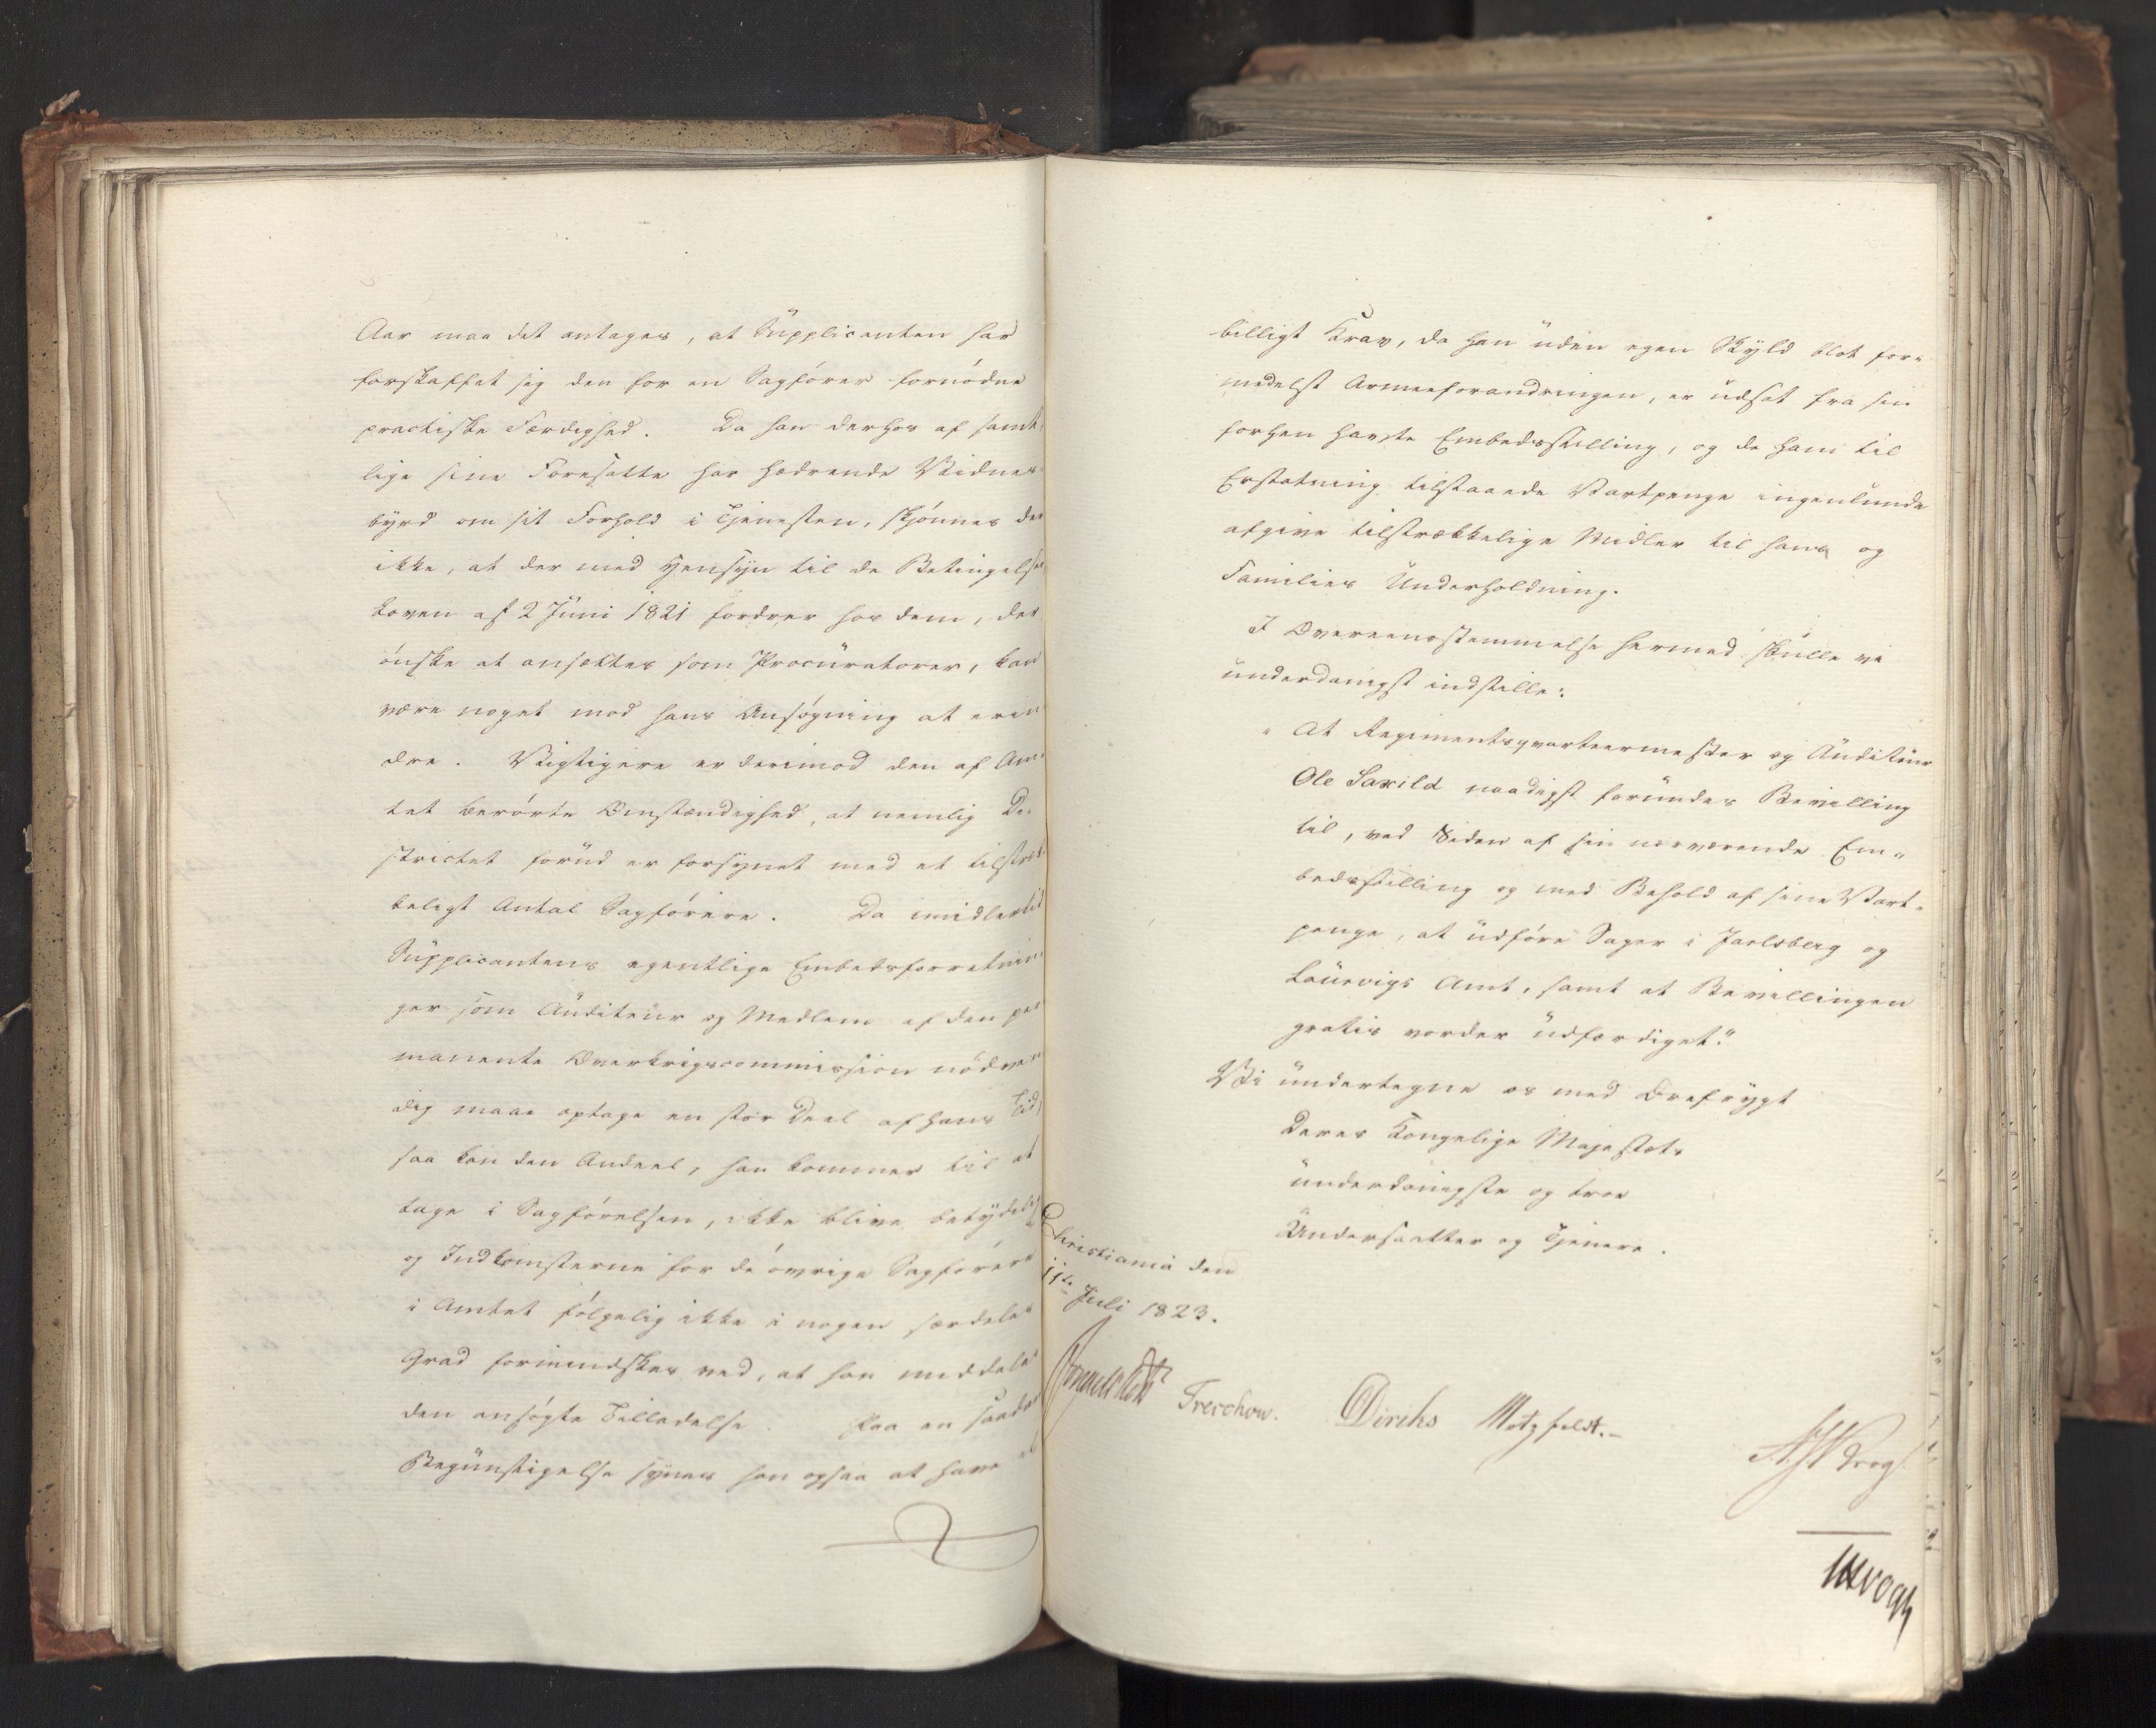 Aar maa det antages, at Supplicanten har
forskaffet sig den for en Sagfører fornødne
practiske Færdighed. Da han derhos af samt-
lige sine Foresatte har hædrende Vidnes-
byrd om sit Forhold i Tjenesten, skjønnes det
ikke, at der med Hensyn til de Betingelser
Loven af 2 Juni 1821 fordrer hos dem, der
ønske at ansættes som Procuratorer, kan
være noget mod hans Ansøgning at erin-
dre. Vigtigere er derimod den af Am-
tet berørte Omstændighed, at nemlig Di-
strictet forud er forsynet med et tilstræk-
keligt Antal Sagførere. Da imidlertid
Supplicantens egentlige Embedsforretnin-
ger som Auditeur og Medlem af den per-
manente Overkrigscommission nødven-
dig maae optage en stor Deel af hans Tid,
saa kan den Andeel, han kommer til at
tage i Sagførelsen, ikke blive betydelig
og Indkomsterne for de øvrige Sagførere
i Amtet følgelig ikke i nogen særdeles
Grad formindskes ved, at han meddeles
den ansøgte Tilladelse. Paa en saadan
Begunstigelse synes han ogsaa at have et
billigt Krav, da han uden egen Skyld blot for-
medelst Armeeforandringen, er udsat fra sin
forhen havte Embedsstilling, og de ham til
Erstatning tilstaaede Vartpenge ingenlunde
afgive tilstrækkelige Midler til hans og
Families Underholdning.
I Overeensstemmelse hermed skulle vi
underdanigst indstille:
"At Regimentsqvarteermester og Auditeur
Ole Saxild naadigst forundes Bevilling
til, ved Siden af sin nærværende Em-
bedsstilling og med Behold af sine Vart-
penge, at udføre Sager i Jarlsberg og
Laurvigs Amt, samt at Bevillingen
gratis vorder udfærdiget."
Vi undertegne os med Ærefrygt
Deres Kongelige Majestæts
underdanigste og troe
Undersaatter og Tjenere.
Christiania den
11te Juli 1823.
Treschow. Diriks Motzfeldt.-
Krog